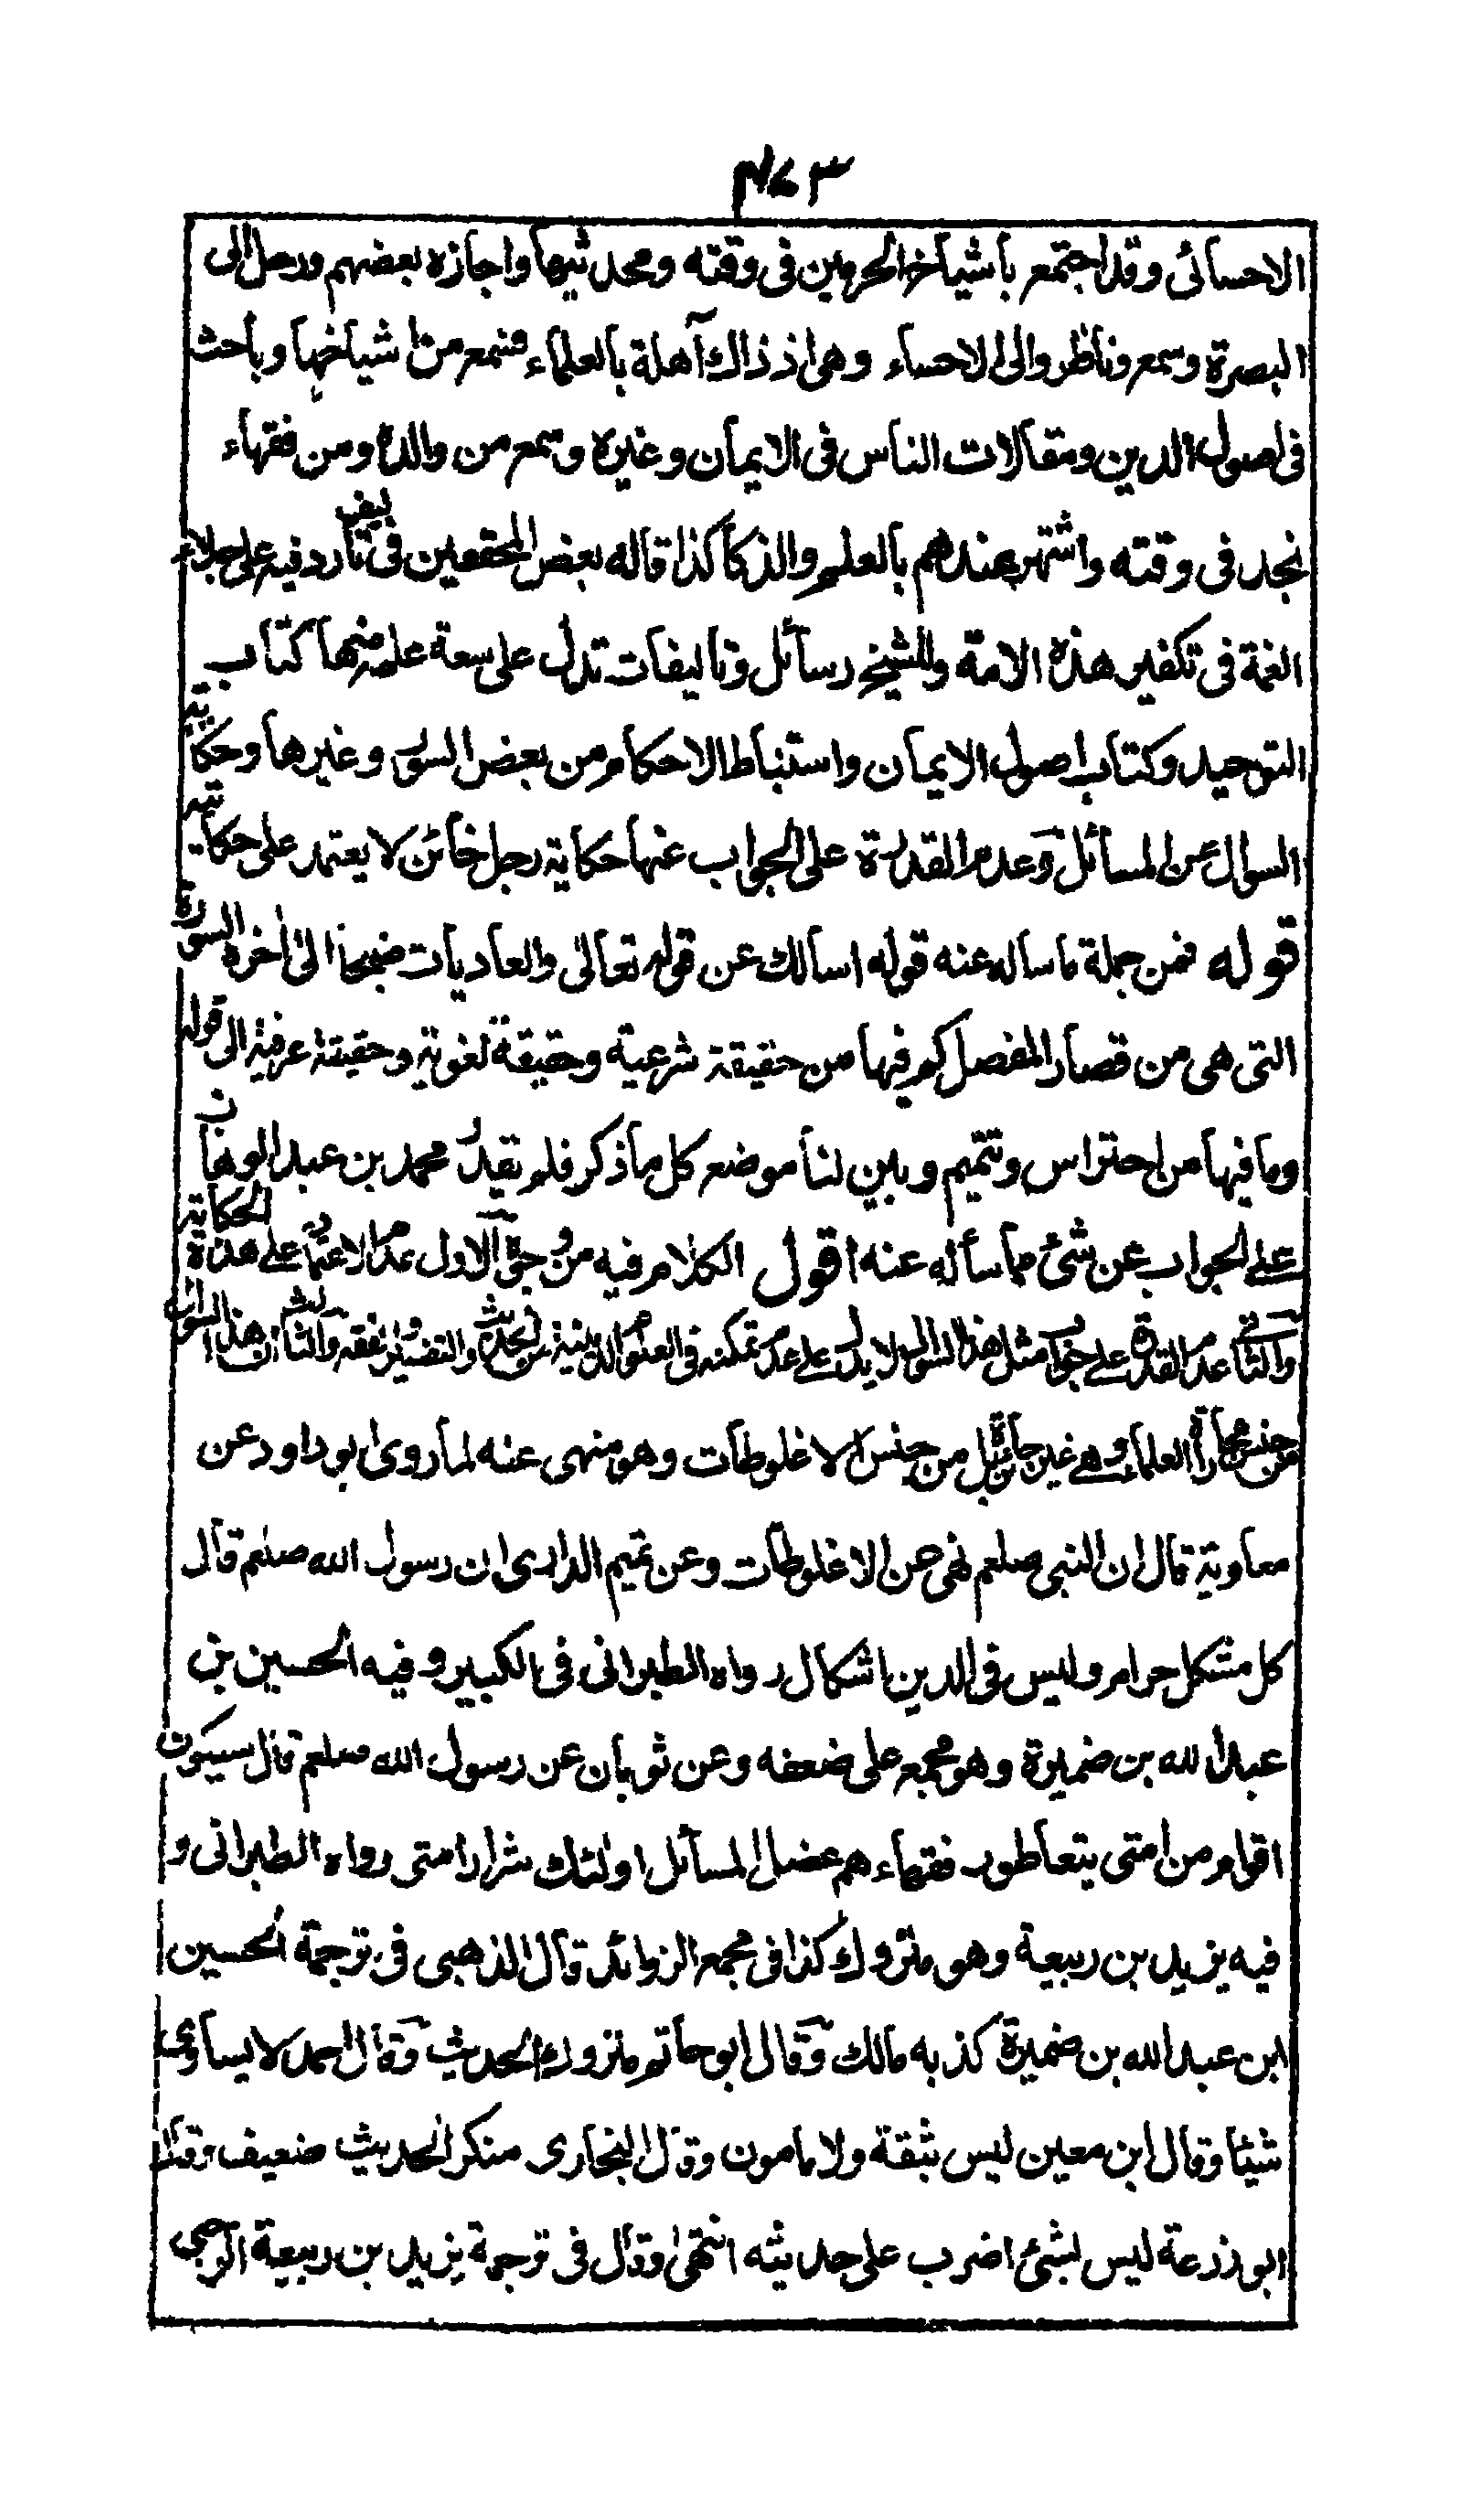 ٤٧٣
الاحسائى وقد اجتمع بأشياخ الحرمين فى وقته ومحدثيها واجازه بعضهم ورحل الى
البصرة وسمع وناظر والى الاحساء وهى اذ ذاك آهلة بالعلماء فسمع من اشياخها وباحث
فى اصول الدين ومقالات الناس فى الايمان وغيره وسمع من والده ومن فقهاء
نجد فى وقته واشتهر عندهم بالعلم والذكا كذا قاله بعض المحققين فى تأليف رد فيه على جلاء
الغمة فى تكفير هذه الامة وللشيخ رسائل وتاليفات تدل على سعة علمه منها كتاب
التوحيد وكتاب اصول الايمان واستنباط الاحكام من بعض السور وغيرها وحكاية
السوال عن المسائل وعدم القدرة على الجواب عنها حكاية رجل خائن لا يعتمد على حكايته
قوله فمن جملة ما ساله عنه قوله اسالك عن قوله تعالى والعاديات ضبحا الى اخره السورة
التى هى من قصار المفصل كم فيها من حقيقة شرعية وحقيقة لغوية وحقيقة عرفية الى قوله
وما فيها من احتراس وتتميم وبين لنا موضع كل ما ذكر فلم يقدر محمد بن عبد الوهاب
على الجواب عن شئ مما سأله عنه اقول الكلام فيه من وجوه الاول عدم الاعتماد على هذه الحكاية
والثانى عدم القدرة على جواب مثل هذا السوال لا يدل على عدم تمكنه فى العلوم الدينية من الحديث والتفسير والفقه والثالث ان هذا السوال
من جنس مجاراة العلماء وهى غير جائزة بل من جنس الاغلوطات وهو منهى عنه لما روى ابو داود عن
معاوية قال ان النبى صلعم نهى عن الاغلوطات وعن تميم الدارى ان رسول الله صلعم قال
كل مشكل حرام وليس فى الدين اشكال رواه الطبرانى فى الكبير وفيه الحسين بن
عبد الله بن ضميرة وهو مجمع على ضعفه وعن ثوبان عن رسول الله صلعم قال سيكون
اقوام من امتى يتعاطون فقهاءهم عضل المسائل اولئك شرار امتى رواه الطبرانى و
فيه يزيد بن ربيعة وهو متروك كذا فى مجمع الزوائد قال الذهبى فى ترجمة الحسين
ابن عبد الله بن ضميرة كذبه مالك وقال ابو حاتم متروك الحديث وقال احمد لا يساوى
شيئا وقال ابن معين ليس بثقة ولا مامون وقال البخارى منكر الحديث ضعيف وقال
ابو زرعة ليس بشئ اضرب على حديثه انتهى وقال فى ترجمة يزيد بن ربيعة الرحبى